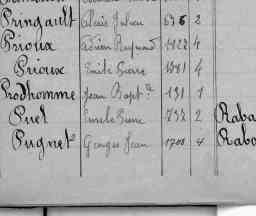 Pringault Alexis Julien 636 2
Prioux Adrien Raymond 1422 4
Prioux Emile Pierre 1881 4
Prodhomme Jean Bapt.te 181 1
Puel Emile Pierre 732 2 Raba
Pugnet Georges Jean 1700 4 Rabo